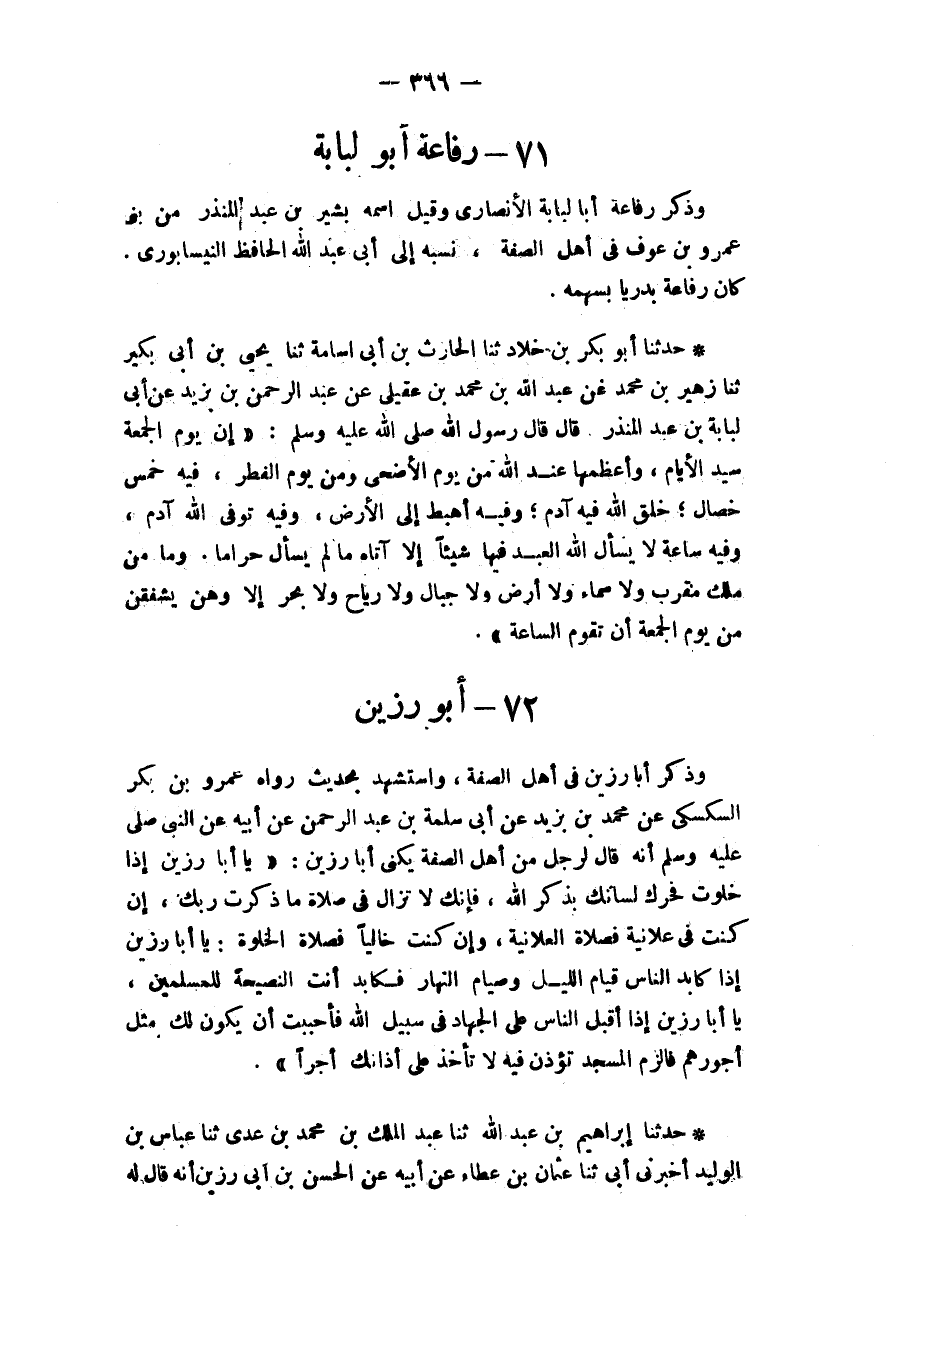 — ٣٦٦ —
٧١ – رفاعة أبو لبابة
وذكر رفاعة أبا لبابة الأنصارى وقيل اسمه بشير بن عبد المنذر من بنى
عمرو بن عوف فى أهل الصفة ، نسبه إلى أبى عبد الله الحافظ النيسابورى .
كان رفاعة بدريا بسهمه .
* حدثنا أبو بكر بن خلاد ثنا الحارث بن أبى اسامة ثنا يحيى بن أبى بكير
ثنا زهير بن محمد عن عبد الله بن محمد بن عقيلى عن عبد الرحمن بن يزيد عن أبى
لبابة بن عبد المنذر . قال قال رسول الله صلى الله عليه وسلم : « إن يوم الجمعة
سيد الأيام ، وأعظمها عنــد الله من يوم الأضحى ومن يوم الفطر ، فيه خمس
خصال ؛ خلق الله فيه آدم ؛ وفيــه أهبط إلى الأرض ، وفيه توفى الله آدم ،
وفيه ساعة لا يسأل الله العبــد فيها شيئاً إلا آتاه ما لم يسأل حراما . وما من
ملك مقرب ولا سماء ولا أرض ولا جبال ولا رياح ولا بحر إلا وهن يشفقن
من يوم الجمعة أن تقوم الساعة » .
٧٢ – أبو رزين
وذكر أبا رزين فى أهل الصفة ، واستشهد بحديث رواه عمرو بن بكر
السكسكى عن محمد بن يزيد عن أبى سلمة بن عبد الرحمن عن أبيه عن النبى صلى
عليه وسلم أنه قال لرجل من أهل الصفة يكنى أبا رزين : « يا أبا رزين إذا
خلوت فحرك لسانك بذكر الله ، فإنك لا تزال فى صلاة ما ذكرت ربك ، إن
كنت فى علانية فصلاة العلانية ، وإن كنت خالياً فصلاة الخلوة : يا أبا رزين
إذا كابد الناس قيام الليــل وصيام النهار فــكابد أنت النصيحة للمسلمين ،
يا أبا رزين إذا أقبل الناس على الجهاد فى سبيل الله فأحببت أن يكون لك مثل
أجورهم فالزم المسجد تؤذن فيه لا تأخذ على أذانك أجراً » .
* حدثنا إبراهيم بن عبد الله ثنا عبد الملك بن محمد بن عدى ثنا عباس بن
الوليد أخبرنى أبى ثنا عثمان بن عطاء عن أبيه عن الحسن بن أبى رزين أنه قال له